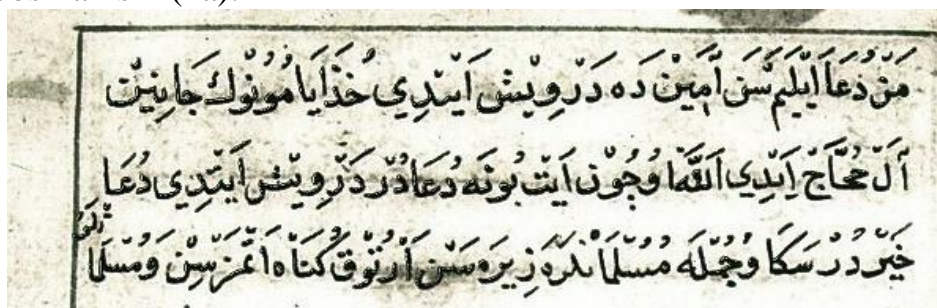 مَنْ دُعَا اَيْلَيَم سَنْ آمِينْ دَه دَرْوِيشْ اَيْتدِي خُذَايَا مُونُوكْ جَانِينْ
آلْ حُجَّاجْ اَيْدِي اَللّٰه اُوچُونْ اَيْتْ بُونَه دُعَادُرْ دَرْوِيشْ اَيْتدِي دُعَا
خَيْردُرْ سَكَا وُجُمْلَه مُسُلْمَانْلَرَه زِيرَه سَنْ اَرْتُوقْ كُنَاه اِتْمَزْسِنْ وَمُسُلْمَا